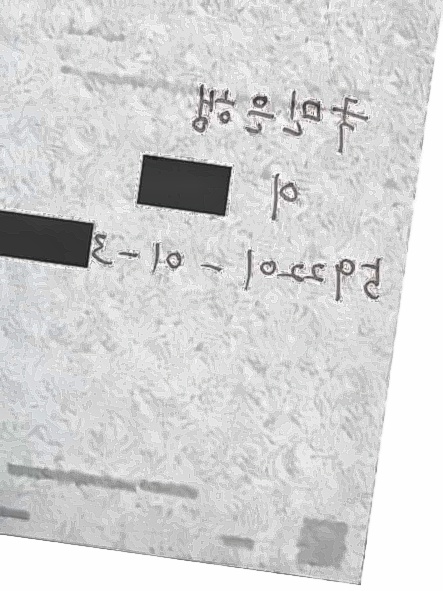 국민은행
이
592201-01-3